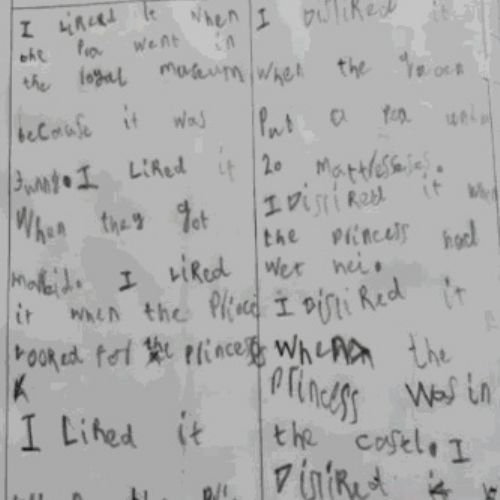 I Liked it when
the Pea went in
the loyal mueseum
because it was
funny. I Liked it
When they got
marbid. I Liked
it when the Prince
looked for the princess
I Liked it
I DisliRed it
when the
Put a Pea unto
20 mattresseses.
I DisliRed it when
the princess had
wet hei.
I DisliRed it
When the
Princess was in
the castl. I
DisliRed it